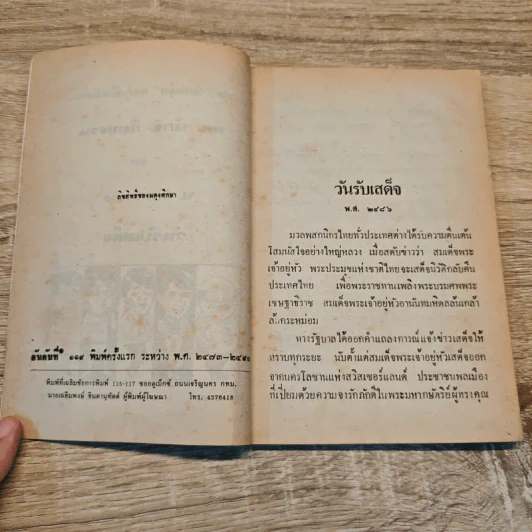 ลิขสิทธิ์ของผดุงศึกษา
อันดับที่ ๑๑๙ พิมพ์ครั้งแรก ระหว่าง พ.ศ. ๒๔๗๓-๒๔๙๓
พิมพ์ที่เฉลิมชัยการพิมพ์ 115-117 ซอยอูเม็กซ์ ถนนเจริญนคร กทม.
นายเฉลิมพงษ์ จินดานุทัตต์ ผู้พิมพ์ผู้โฆษณา โทร. 4376416
วันรับเสด็จ
พ.ศ. ๒๔๙๖
มวลพสกนิกรไทยทั่วประเทศต่างได้รับความตื่นเต้น
โสมนัสใจอย่างใหญ่หลวง เมื่อสดับข่าวว่า สมเด็จพระ
เจ้าอยู่หัว พระประมุขแห่งชาติไทยจะเสด็จนิวัติกลับคืน
ประเทศไทย เพื่อพระราชทานเพลิงพระบรมศพพระ
เชษฐาธิราช สมเด็จพระเจ้าอยู่หัวอานันทมหิดลล้นเกล้า
ล้นกระหม่อม
ทางรัฐบาลได้ออกคำแถลงการณ์แจ้งข่าวเสด็จให้
ทราบทุกระยะ นับตั้งแต่สมเด็จพระเจ้าอยู่หัวเสด็จออก
จากนครโลซานแห่งสวิสเซอร์แลนด์ ประชาชนพลเมือง
ที่เปี่ยมด้วยความจงรักภักดีในพระมหากษัตริย์ผู้ทรงคุณ